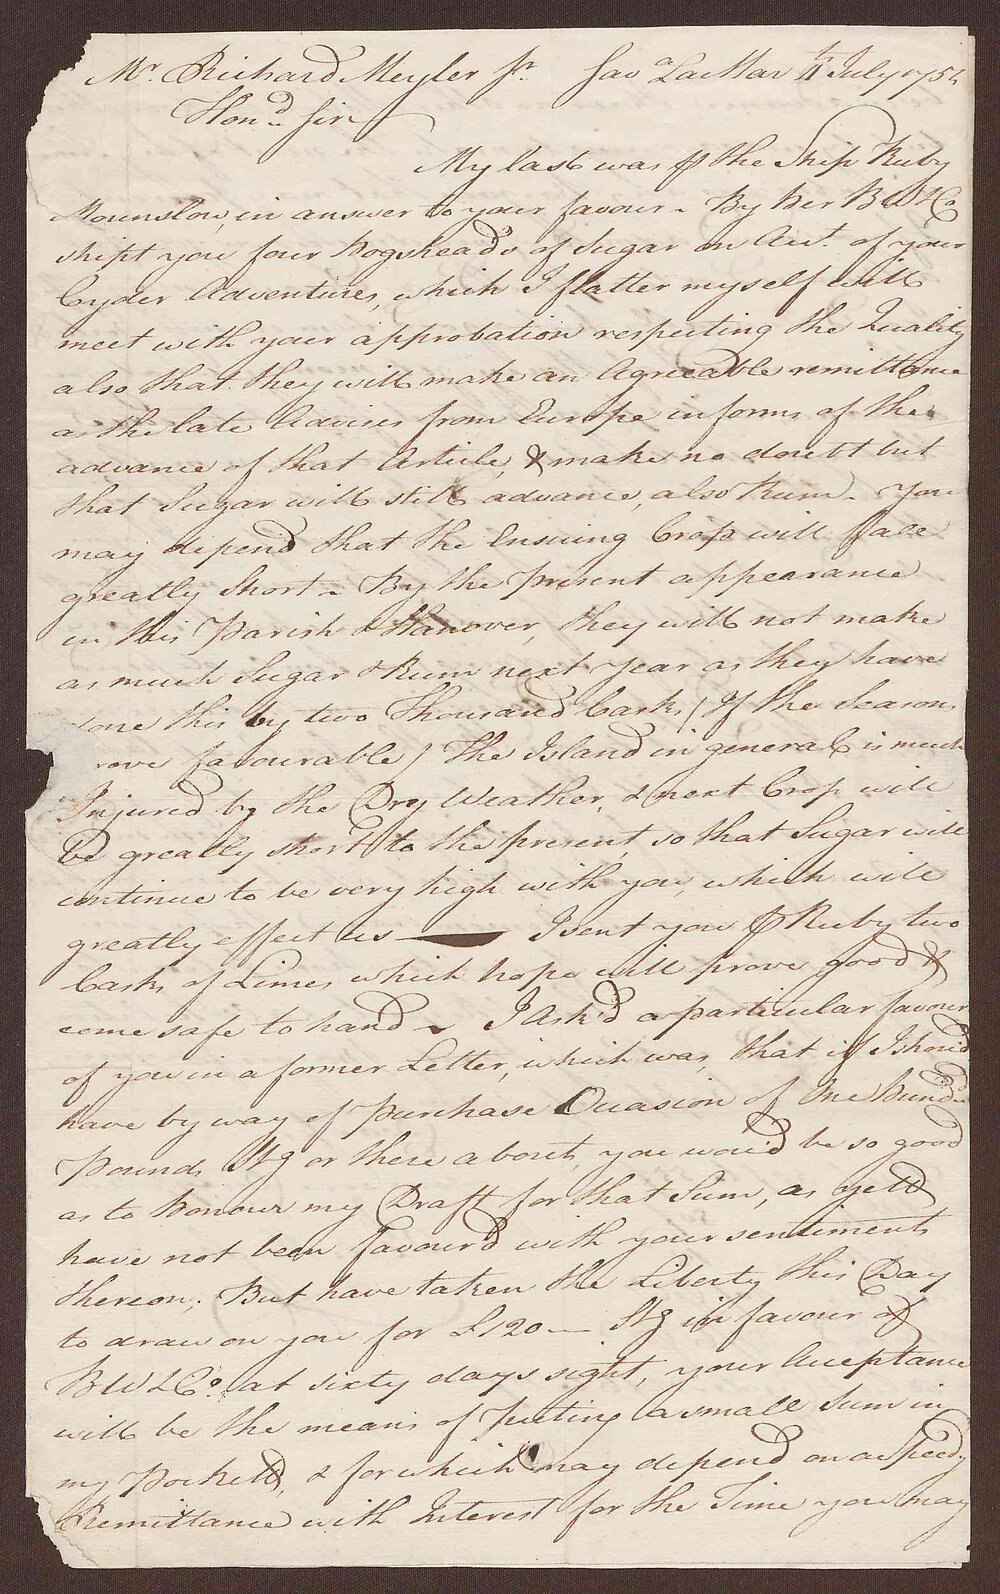 Mr. Richard Meyler Jr. Sava La Mar 11 July 175
Hond. Sir
My last was ⅌ the Ship Ruby
Mounslow, in answer to your favour - By her B W & Co
shipt you four Hogshead's of Sugar on Acct. of your
Cyder Adventures, which I flatter myself will
meet with your approbation respecting the Quality
also that they will make an Agreeable remittance
as the late Advices from Europe informs of the
advance of that Article, & make no doubt but
that Sugar will still advance, also Rum - You
may depend that the Ensuing Crop will fall
greatly Short - By the present appearance
in this Parish & Hanover, they will not make
as much Sugar & Rum next Year as they have
done this by two Thousand Casks (If the Seasons
rove favourable) The Island in general is much
Injured by the Dry Weather, & next Crop will
be greatly short to the present, so that Sugar will
continue to be very high with you, which will
greatly effect us — I sent you ⅌ Ruby two
Casks of Limes which hope will prove good &
come safe to hand - I Ask'd a particular favour
of you in a former Letter, which was, that if I shou'd
have by way of Purchase Occasion of One Hund'd
Pounds Stg or there abouts, you wou'd be so good
as to Honour my Draft for that Sum, as yett
have not been favour'd with your sentiments
thereon; But have taken the Liberty this Day
to draw on you for £120 — Stg in favour of
B W & Co. at sixty days sight, your Acceptance
will be the means of puting a small Sum in
my Pockett, & for which may depend on a Speedy
Remittance with Interest for the Time you may